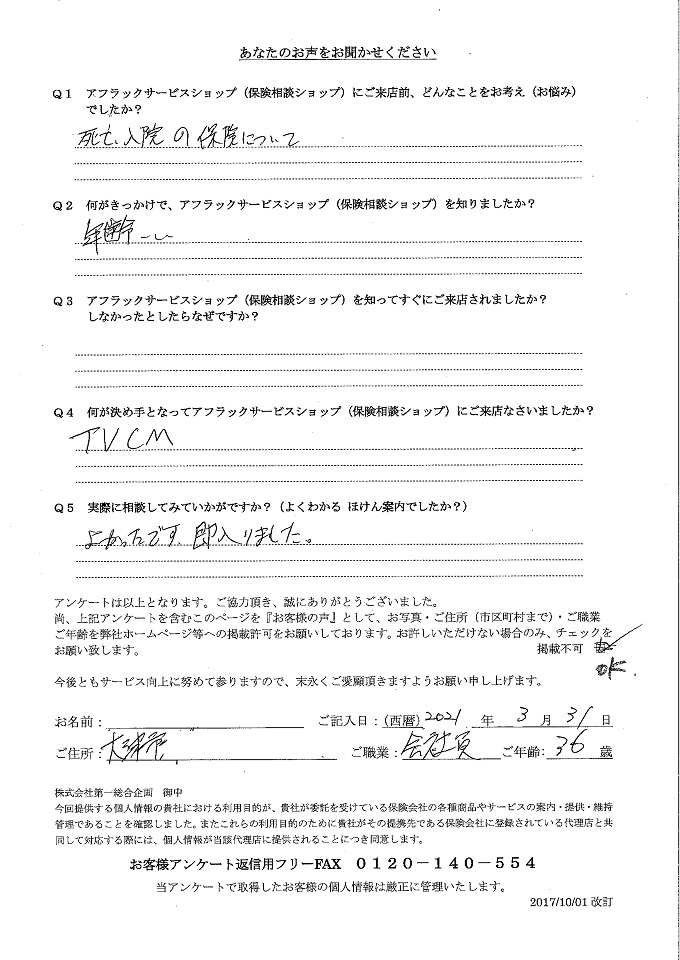 あなたのお声をお聞かせください
Q1 アフラックサービスショップ(保険相談ショップ)にご来店前、どんなことをお考え(お悩み)
でしたか?
死亡、入院の保院について
Q2 何がきっかけで、アフラックサービスショップ(保険相談ショップ)を知りましたか?
年齢
Q3 アフラックサービスショップ(保険相談ショップ)を知ってすぐにご来店されましたか?
しなかったとしたらなぜですか?
Q4 何が決め手となってアフラックサービスショップ(保険相談ショップ)にご来店なさいましたか?
TVCM
Q5 実際に相談してみていかがですか?(よくわかる ほけん案内でしたか?)
よかったです、即入りました。
アンケートは以上となります。ご協力頂き、誠にありがとうございました。
尚、上記アンケートを含むこのページを『お客様の声』として、お写真・ご住所(市区町村まで)・ご職業
ご年齢を弊社ホームページ等への掲載許可をお願いしております。お許しいただけない場合のみ、チェックを
お願い致します。 掲載不可
OK.
今後ともサービス向上に努めて参りますので、末永くご愛顧頂きますようお願い申し上げます。
お名前: ご記入日:(西暦)2021 年 3 月 31 日
ご住所:大津市 ご職業:会社員 ご年齢:36 歳
株式会社第一総合企画 御中
今回提供する個人情報の貴社における利用目的が、貴社が委託を受けている保険会社の各種商品やサービスの案内・提供・維持
管理であることを確認しました。またこれらの利用目的のために貴社がその提携先である保険会社に登録されている代理店と共
同して対応する際には、個人情報が当該代理店に提供されることにつき同意します。
お客様アンケート返信用フリーFAX 0120-140-554
当アンケートで取得したお客様の個人情報は厳正に管理いたします。
2017/10/01 改訂